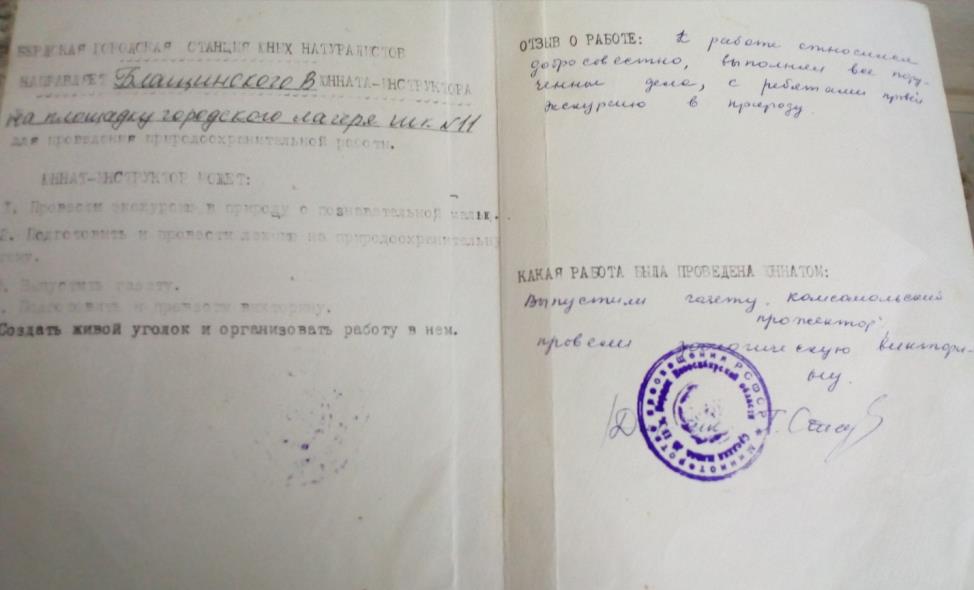 БЕРДСКАЯ ГОРОДСКАЯ СТАНЦИЯ ЮНЫХ НАТУРАЛИСТОВ
НАПРАВЛЯЕТ Блащинского В ЮННАТА-ИНСТРУКТОРА
на площадку городского лагеря шк. №11
для проведения природоохранительной работы.
ЮННАТ-ИНСТРУКТОР МОЖЕТ:
1. Провести экскурсию в природу с познавательной
2. Подготовить и провести лекцию на природоохранительну
тему.
Выпустить газету.
Подготовить и провести викторину.
Создать живой уголок и организовать работу в нем.
ОТЗЫВ О РАБОТЕ: К работе относился
добросовестно, выполнял все пору-
ченные дела, с ребятами провёл
экскурсию в природу.
КАКАЯ РАБОТА БЫЛА ПРОВЕДЕНА ЮННАТОМ:
Выпустили газету. Комсомольский
прожектор,
провели зоологическую виктори-
ну.
МИНИСТЕРСТВО ПРОСВЕЩЕНИЯ РСФСР
Новосибирской области